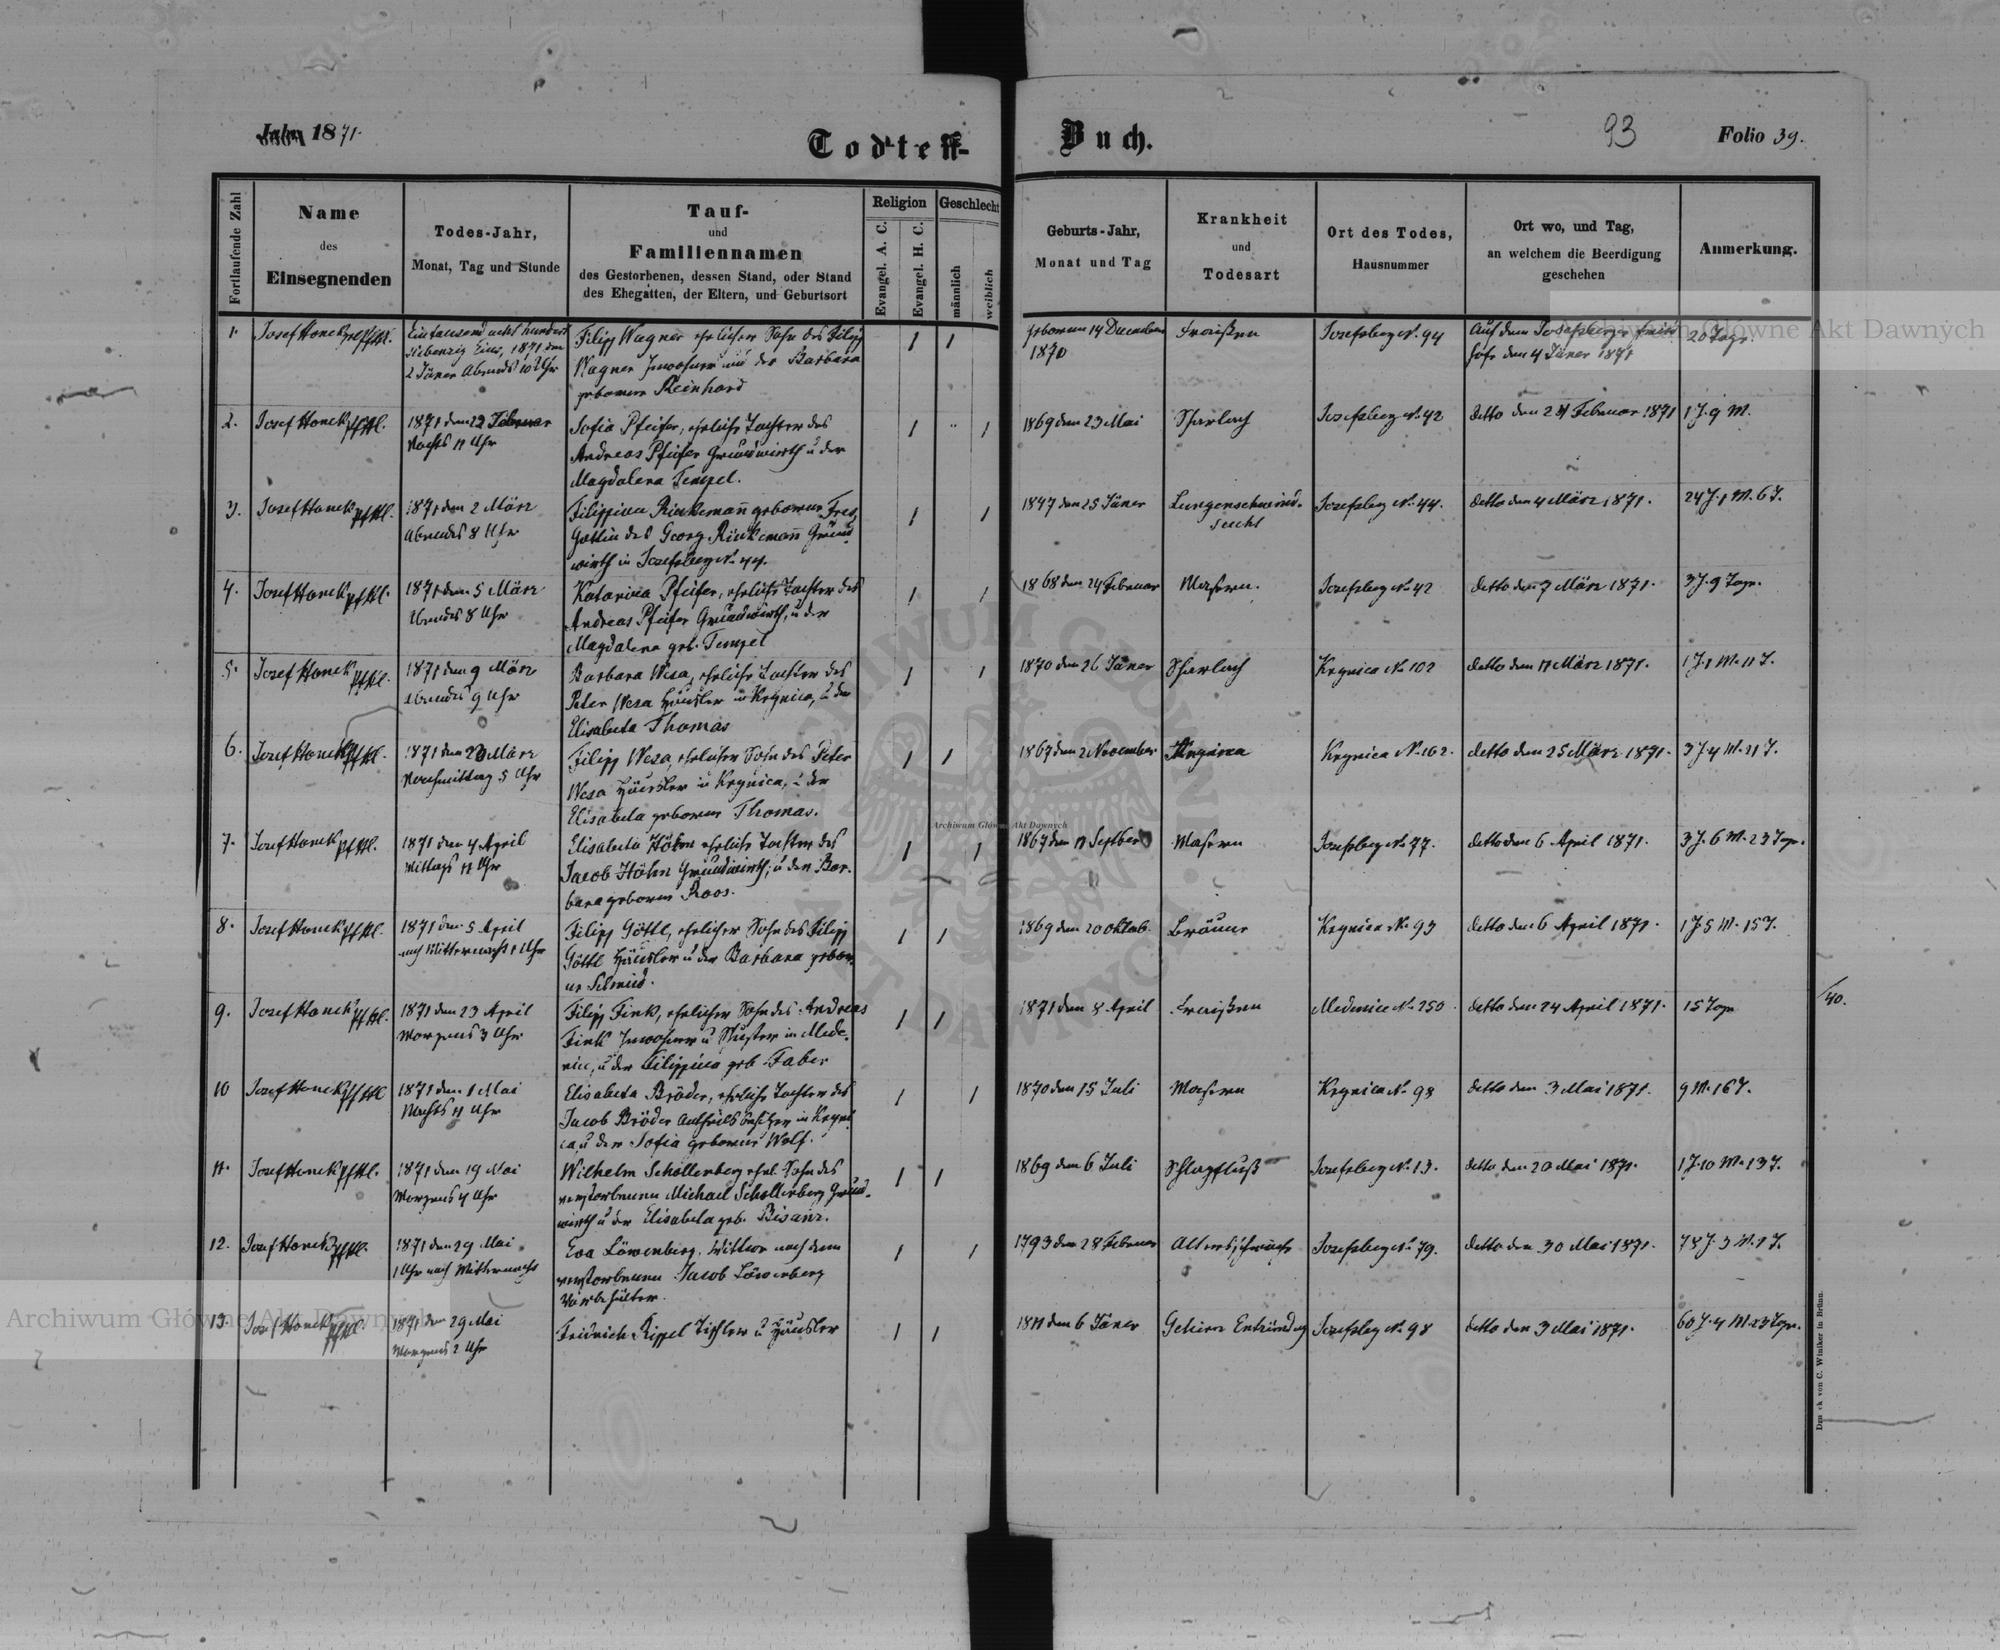 Jahr 1871.
Todten-
Buch.
93
Folio 39.
Fortlaufende Zahl
Name
des
Einsegnenden
Todes-Jahr,
Monat, Tag und Stunde
Tauf-
und
Familiennamen
des Gestorbenen, dessen Stand, oder Stand
des Ehegatten, der Eltern, und Geburtsort
Religion
Evangel. A. C.
Evangel. H. C.
Geschlecht
männlich
weiblich
Geburts-Jahr,
Monat und Tag
Krankheit
und
Todesart
Ort des Todes,
Hausnummer
Ort wo, und Tag,
an welchem die Beerdigung
geschehen
Anmerkung.
1. Josef Hanek
Eintausend acht hundert
siebenzig Eins, 1871 den
2 Jäner Abends 10 Uhr
Filipp Wagner ehelicher Sohn des Filipp
Wagner Inwohner und der Barbara
geborenen Reinhard
geboren 14 December
1870
Fraißen
Josefsberg N. 94
Auf dem Josefsberger Fried
hofe den 4 Jäner 1871
20 Tage.
2. Josef Hanek
1871 den 22 Februar
Nachts 11 Uhr
Sofia Pfeifer, eheliche Tochter des
Andreas Pfeifer Grundwirth u der
Magdalena Tempel.
1869 den 23 Mai
Scharlach
Josefsberg N. 42
detto den 24 Februar 1871
1 J. 9 M.
3. Josef Hanek
1871 den 2 März
Abends 8 Uhr
Filippina Rinkemann geborene
Gattin des Georg Rinkemann Grund
wirth in Josefsberg N. 44.
1847 den 25 Jäner
Lungenschwind-
sucht
Josefsberg N. 44.
detto den 4 März 1871.
24 J. 1 M. 6 T.
4. Josef Hanek
1871 den 5 März
Abends 8 Uhr
Katarina Pfeifer, eheliche Tochter des
Andreas Pfeifer Grundwirth, u der
Magdalena geb. Tempel
1868 den 24 Februar
Masern.
Josefsberg N. 42
detto den 7 März 1871.
3 J. 9 Tage.
5. Josef Hanek
1871 den 9 März
Abends 9 Uhr
Barbara Wesa, eheliche Tochter des
Peter Wesa Häusler in Krynica, u der
Elisabeta Thomas
1870 den 26 Jäner
Scharlach
Krynica N. 102
detto den 11 März 1871.
1 J. 1 M. 11 T.
6. Josef Hanek
1871 den 23 März
Nachmittag 5 Uhr
Filipp Wesa, ehelicher Sohn des Peter
Wesa Häusler in Krynica, u der
Elisabeta geborene Thomas.
1867 den 2 November
Angina
Krynica N. 102.
detto den 25 März 1871.
3 J. 4 M. 21 T.
7. Josef Hanek
1871 den 4 April
Mittags 11 Uhr
Elisabeta Höhn eheliche Tochter des
Jacob Höhn Grundwirth, u der Bar-
bara geborene Roos.
1867 den 11 Septber
Masern
Josefsberg N. 77.
detto den 6 April 1871.
3 J. 6 M. 23 Tage.
8. Josef Hanek
1871 den 5 April
nach Mitternacht 1 Uhr
Filipp Göttl, ehelicher Sohn des Filipp
Göttl Häusler u der Barbara gebor
ne Schmid.
1869 den 20 Oktob.
Bräune
Krynica N. 93
detto den 6 April 1871.
1 J. 5 M. 15 T.
9. Josef Hanek
1871 den 23 April
Morgens 3 Uhr
Filipp Fink, ehelicher Sohn des Andreas
Fink Inwohner u Schuster in Mede-
nice, u der Filippina geb. Faber
1871 den 8 April
Fraißen
Medenice N. 250
detto den 24 April 1871.
15 Tage
/40.
10 Josef Hanek
1871 den 1 Mai
Nachts 11 Uhr
Elisabeta Bröder, eheliche Tochter des
Jacob Bröder Antheilsbesitzer in Kryni
ca, u der Sofia geborene Wolf.
1870 den 15 Juli
Masern
Krynica N. 98
detto den 3 Mai 1871.
9 M. 16 T.
11. Josef Hanek
1871 den 19 Mai
Morgens 4 Uhr
Wilhelm Schollenberg ehel. Sohn des
verstorbenen Michael Schollenberg Grund-
wirth u der Elisabeta geb. Bisanz.
1869 den 6 Juli
Schlagfluß
Josefsberg N. 13.
detto den 20 Mai 1871.
1 J. 10 M. 13 T.
12. Josef Hanek
1871 den 29 Mai
1 Uhr nach Mitternacht
Eva Löwenberg, Wittwe nach dem
verstorbenen Jacob Löwenberg
1793 den 28 Februar
Altersschwäche
Josefsberg N. 79.
detto den 30 Mai 1871.
78 J. 3 M. 1 T.
13. Josef Hanek
1871 den 29 Mai
Morgens 2 Uhr
Fridrich Rippel Tischler u Häusler
1811 den 6 Jäner
Gehirn Entzündug
Josefsberg N. 98
detto den 3 Mai 1871.
60 J. 4 M. 23 Tage.
Druck von C. Winiker in Brünn.
Archiwum Główne Akt Dawnych
Archiwum Główne Akt Dawnych
Archiwum Główne Akt Dawnych